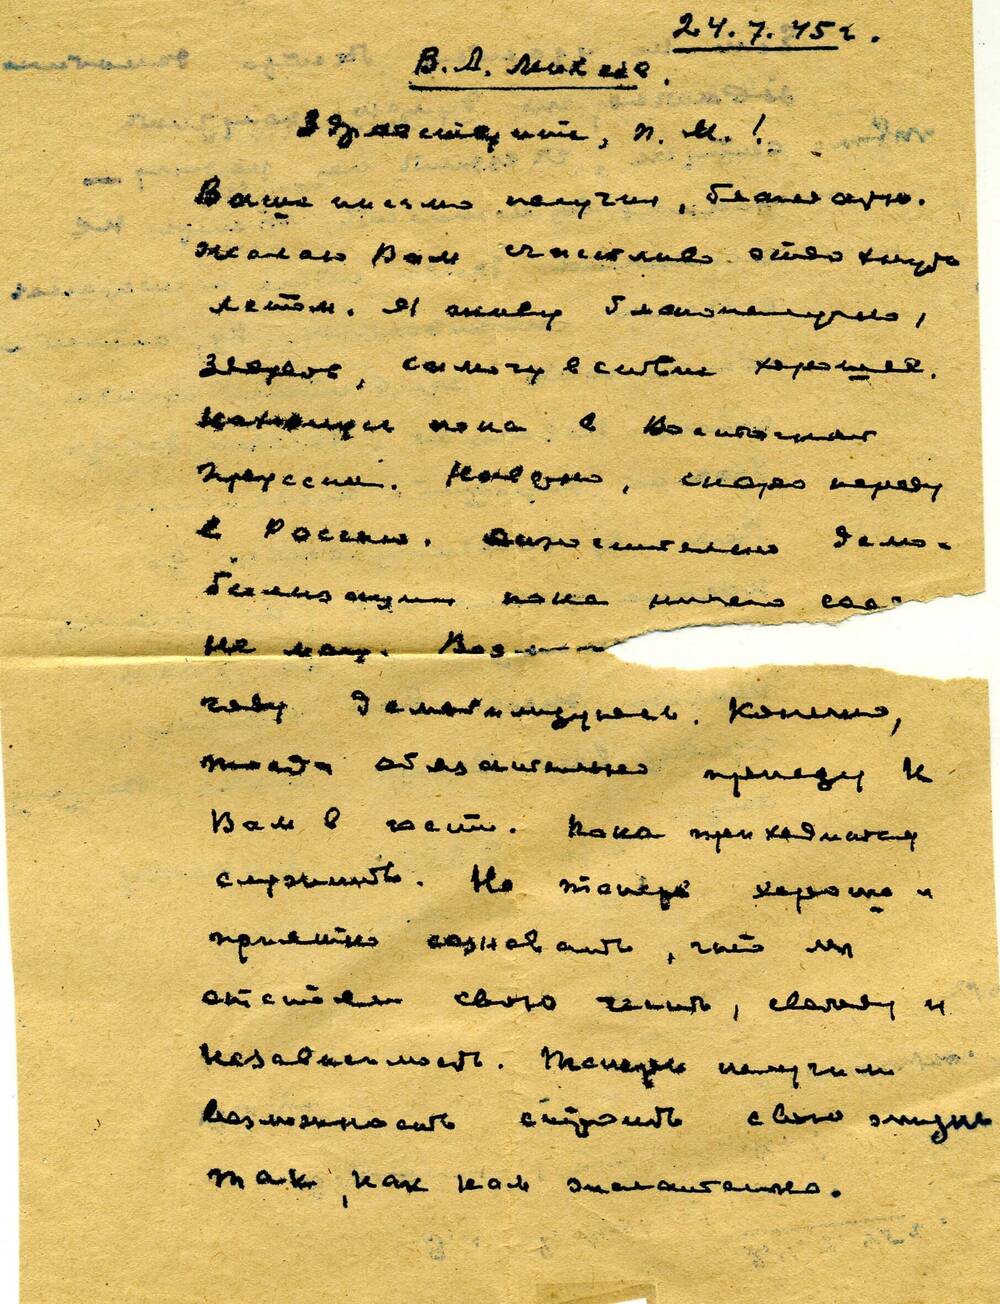 24.7.45 г.
В. А. Михеев.
Здравствуйте, П. М.!
Ваше письмо получил, благодарю.
Желаю Вам счастливо отдохнуть
летом. Я живу благополучно,
здоров, самочувствие хорошее.
Нахожусь пока в Восточной
Пруссии. Наверно, скоро перееду
в Россию. Относительно демо-
билизации пока ничего сооб
не могу.
году демобилизуюсь. Конечно,
тогда обязательно приеду к
Вам в гости. Пока приходится
служить. Но теперь хорошо и
приятно сознавать, что мы
отстояли свою честь, свободу и
независимость. Теперь получили
возможность строить свою жизнь
так, как нам желательно.